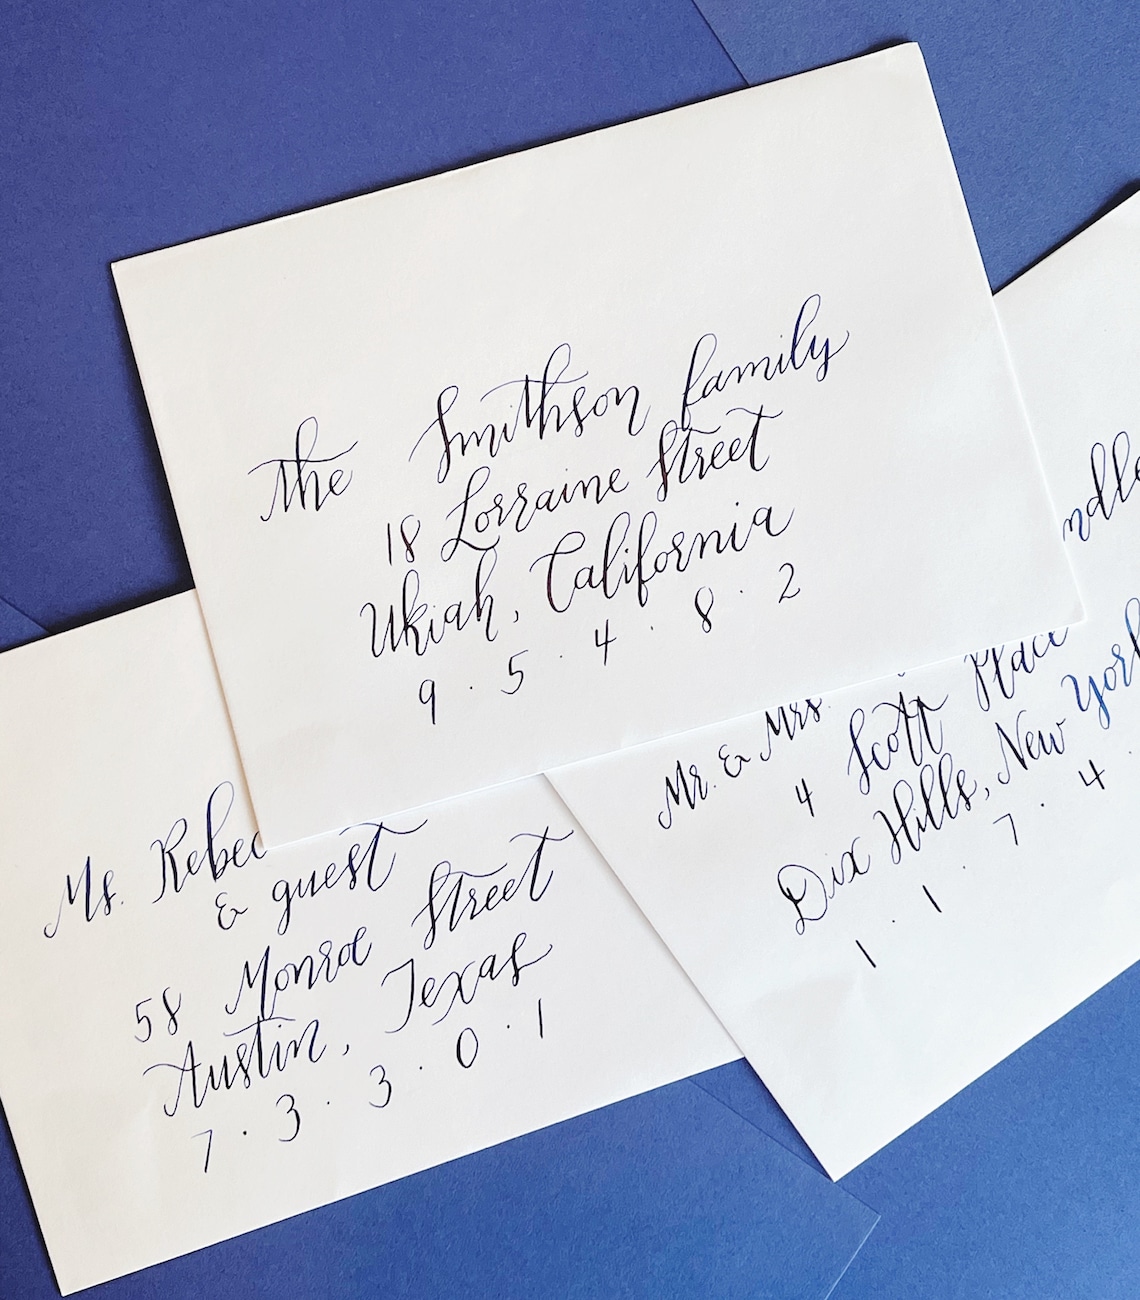 the Smithson family
18 Lorraine Street
Ukiah, California
9 · 5 · 4 · 8 · 2
Ms. Rebec
& guest
58 Monroe Street
Austin, Texas
7 · 3 · 3 · 0 · 1
Mr. & Mrs.
4 Scott Place
Dix Hills, New York
1 · 1 · 7 · 4 ·